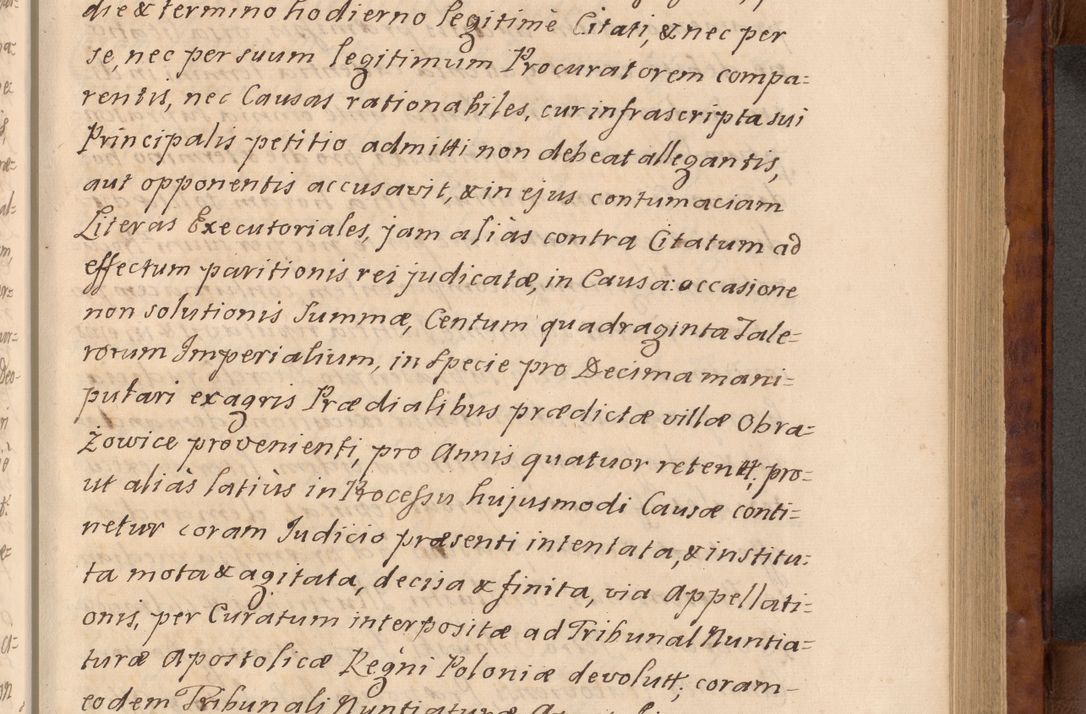 die & termino hodierno legitimè Citati, & nec per
se, nec per suum legitimum Procuratorem compa=
rentis, nec Causas rationabiles, cur infrascripta sui
Principalis petitio admitti non debeat allegantis,
aut opponentis accusavit, & in ejus contumaciam
Literas Executoriales, jam aliàs contra Citatum ad
effectum paritionis rei judicatæ, in Causa occasione
non solutionis Summæ, Centum quadraginta Tale=
rorum Imperialium, in specie pro Decima mani=
pulari ex agris Prædialibus prædictæ villæ Obra=
żowice provenienti, pro Annis quatuor retentt; pro=
ut aliàs latiùs in Processu hujusmodi Causæ conti=
netur coram Judicio præsenti intentata, & institu=
ta mota & agitata, decisa & finita, via Appellati=
onis, per Curatum interpositæ ad Tribunal Nuntia=
turæ Apostolicæ Regni Poloniæ devolutt; coram
eodem Tribunali Nuntiaturæ